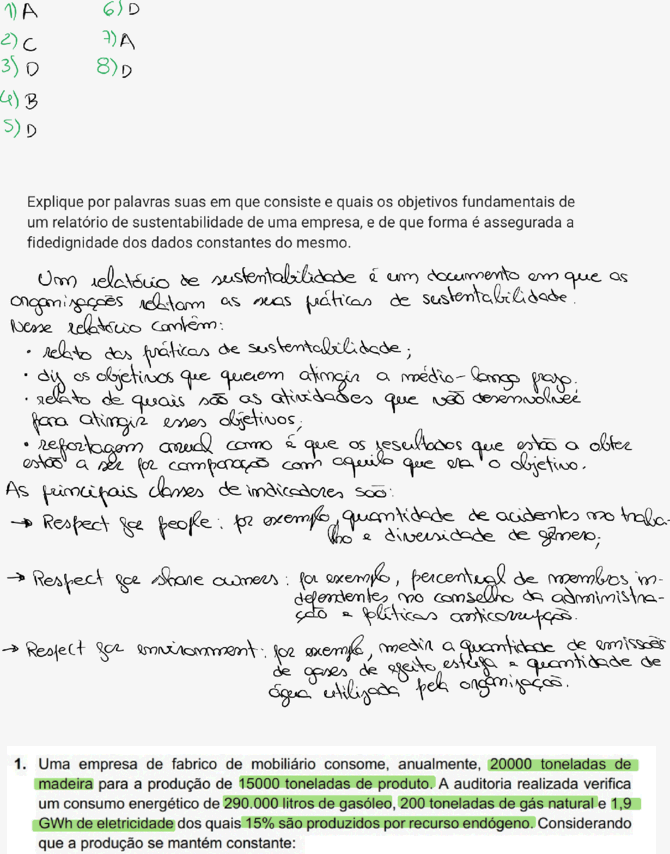 1) A
2) C
3) D
4) B
5) D
6) D
7) A
8) D
Explique por palavras suas em que consiste e quais os objetivos fundamentais de
um relatório de sustentabilidade de uma empresa, e de que forma é assegurada a
fidedignidade dos dados constantes do mesmo.
Um relatório de sustentabilidade é um documento em que as
organizações relatam as suas práticas de sustentabilidade.
Nesse relatório contém:
• relato das práticas de sustentabilidade;
• diz os objetivos que querem atingir a médio-longo prazo.
• relato de quais são as atividades que vão desenvolver
para atingir esses objetivos;
• reportagem anual como é que os resultados que estão a obter
estão a ser por comparação com aquilo que era o objetivo.
As principais classes de indicadores são:
→ Respect for people: por exemplo, quantidade de acidentes no traba-
lho e diversidade de género;
→ Respect for share owners: por exemplo, percentual de membros in-
dependentes no conselho da administra-
ção e políticas anticorrupção.
→ Respect for environment: por exemplo, medir a quantidade de emissões
de gases de efeito estufa e quantidade de
água utilizada pela organização.
1. Uma empresa de fabrico de mobiliário consome, anualmente, 20000 toneladas de
madeira para a produção de 15000 toneladas de produto. A auditoria realizada verifica
um consumo energético de 290.000 litros de gasóleo, 200 toneladas de gás natural e 1,9
GWh de eletricidade dos quais 15% são produzidos por recurso endógeno. Considerando
que a produção se mantém constante: